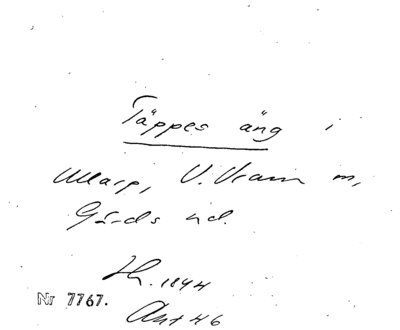 Täppes äng i
Ullarp, V. Vram m,
Gärds hd.
Hf. 1844
Nr 7767.
Akt 46